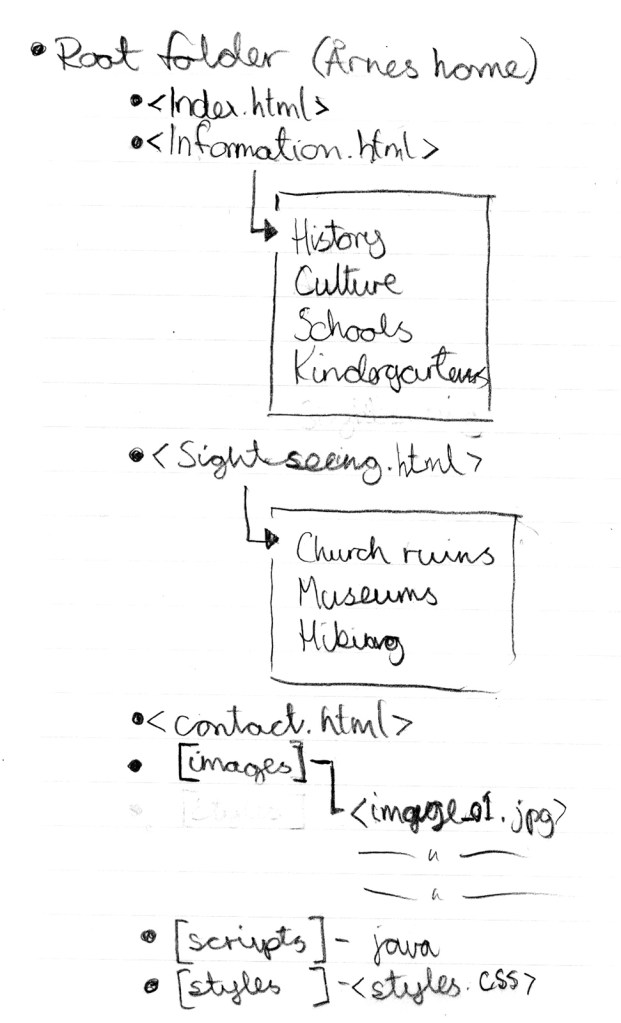 • Root folder (Årnes home)
• <Index.html>
• <Information.html>
History
Culture
Schools
Kindergartens
• <Sightseeing.html>
Church ruins
Museums
Hiking
• <contact.html>
• [images]
<image_01.jpg>
— " —
— " —
• [scripts] - java
• [styles ] - <styles.css>